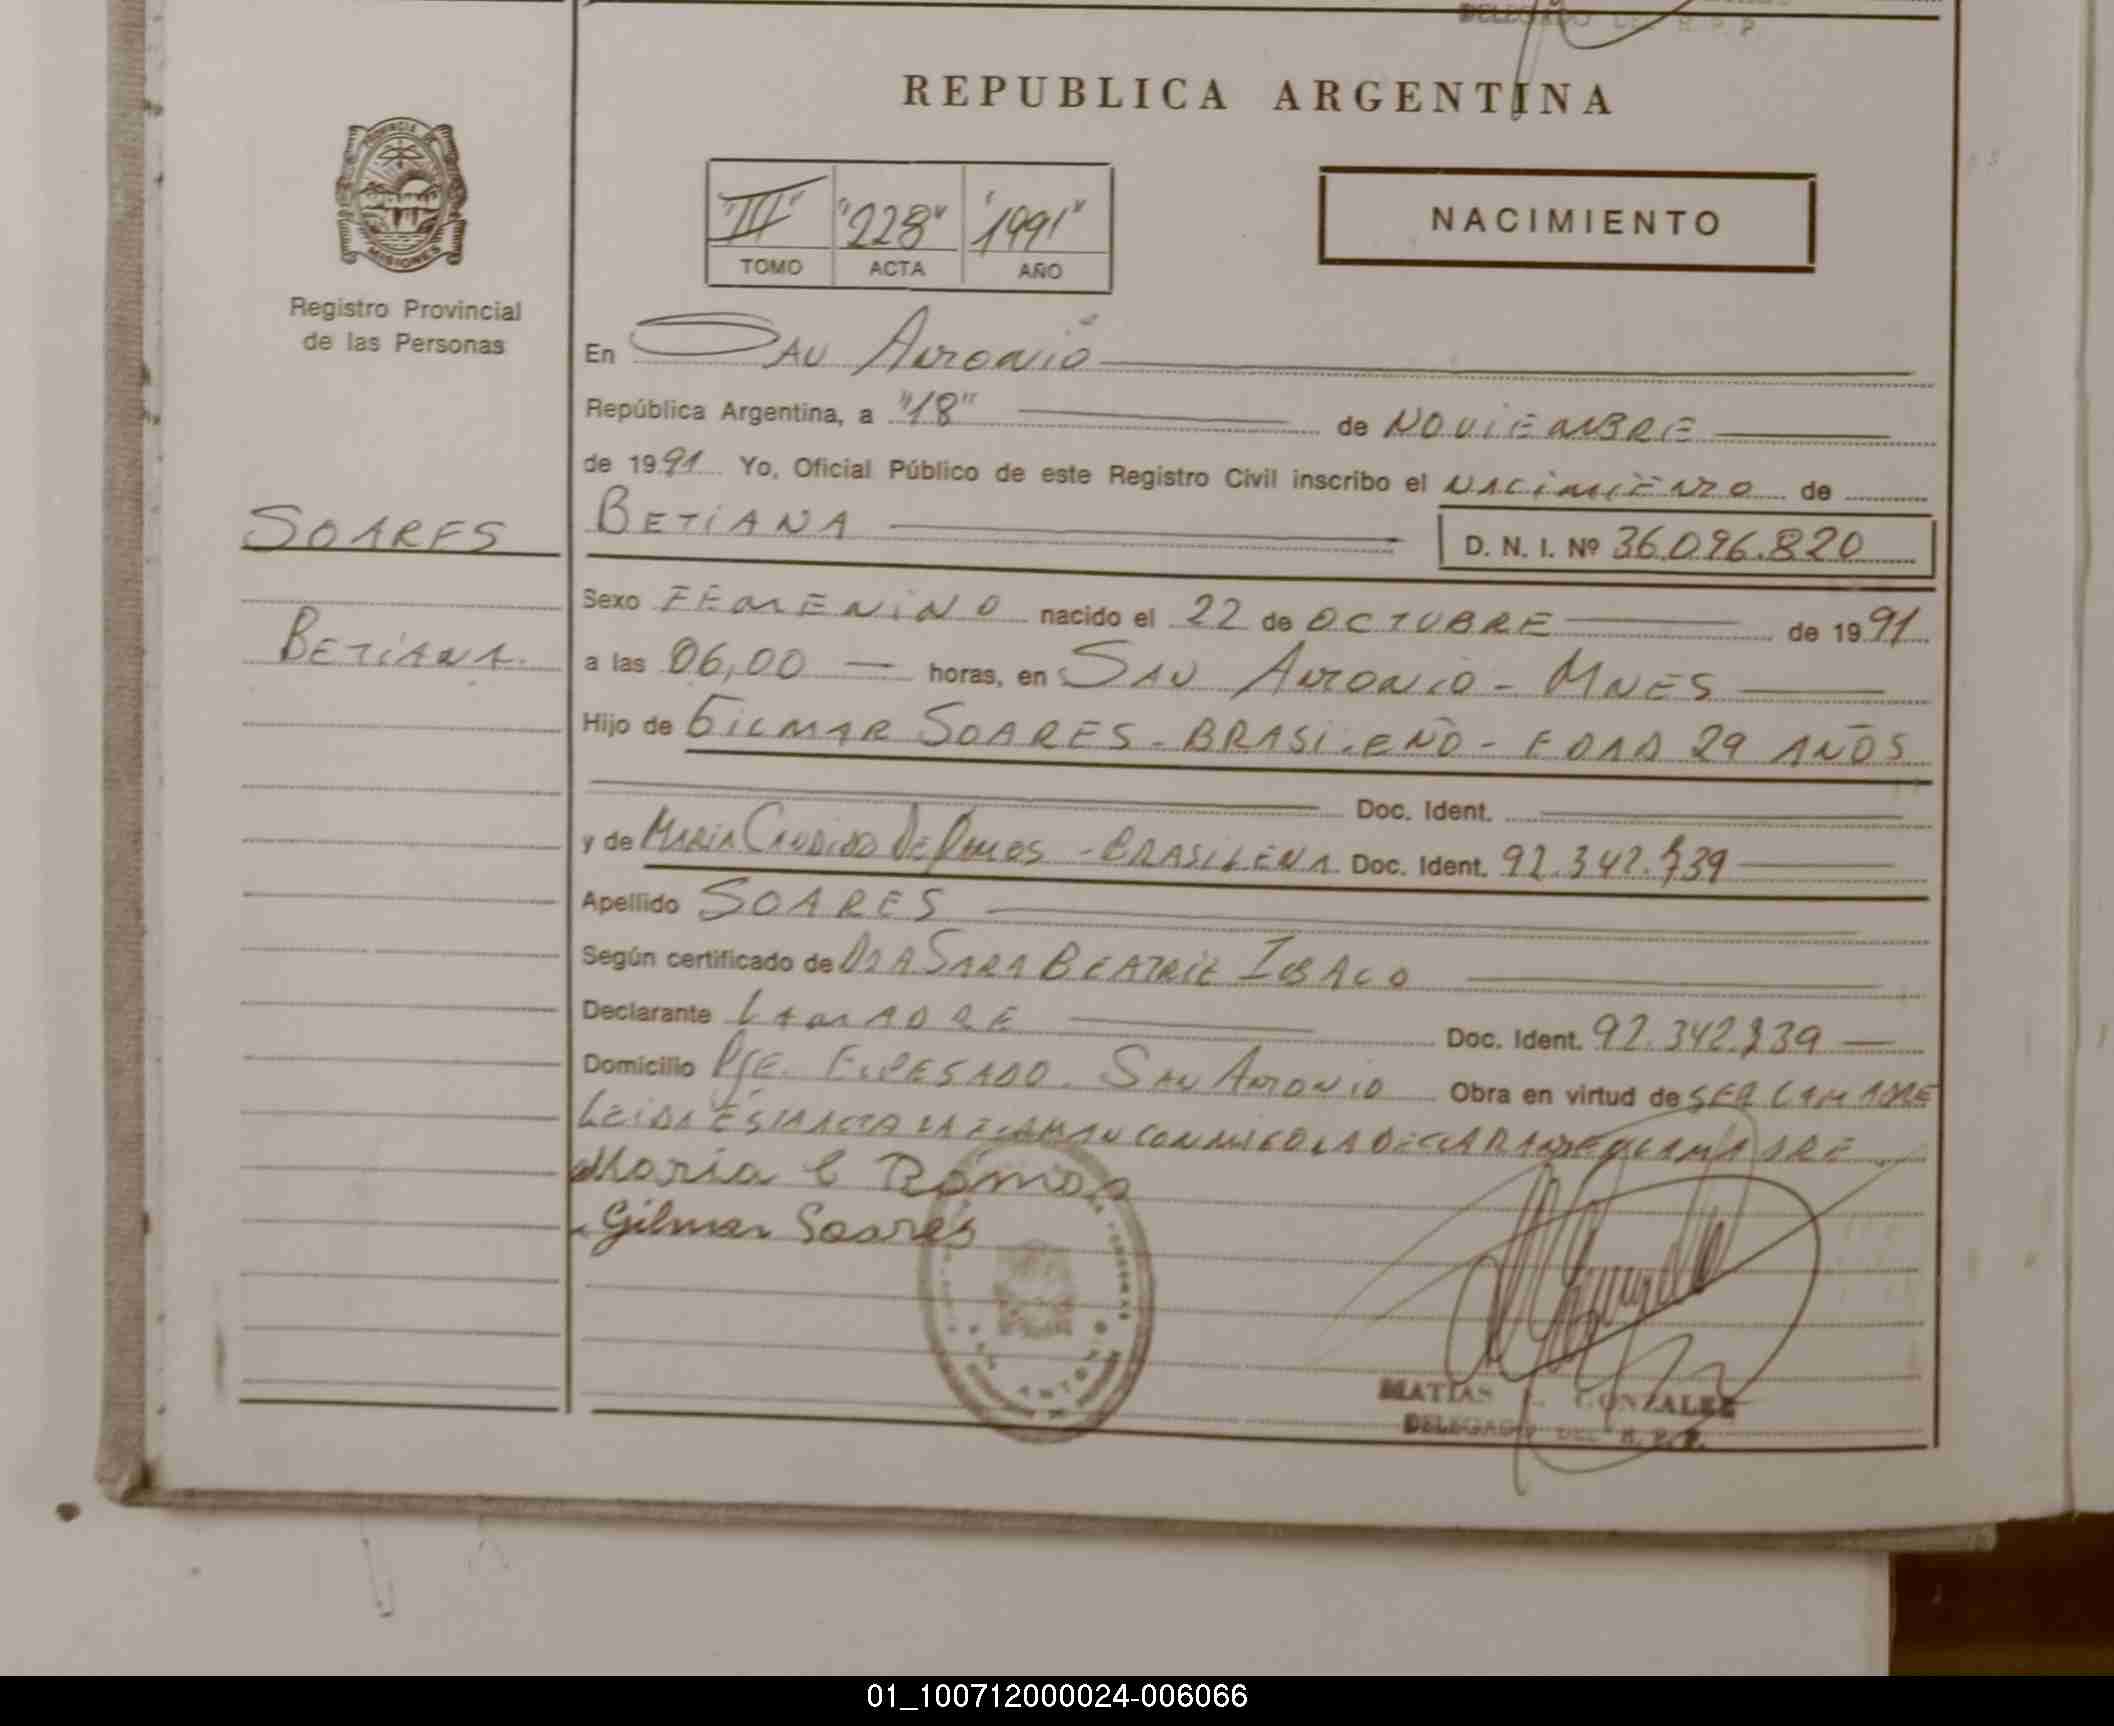 DELEGADO DEL R. P. P.
REPUBLICA ARGENTINA
PROVINCIA DE
MISIONES
Registro Provincial
de las Personas
"III" "228" "1991"
TOMO ACTA AÑO
NACIMIENTO
En SAN ANTONIO
República Argentina, a "18" de NOVIEMBRE
de 1991 Yo, Oficial Público de este Registro Civil inscribo el NACIMIENTO de
SOARES
BETIANA
BETIANA
D. N. I. Nº 36.096.820
Sexo FEMENINO nacido el 22 de OCTUBRE de 1991
a las 06,00 horas, en SAN ANTONIO - MNES
Hijo de GILMAR SOARES - BRASILEÑO - EDAD 29 AÑOS
Doc. Ident.
y de MARIA CANDIDO DE RAMOS - BRASILEÑA Doc. Ident. 92.342.739
Apellido SOARES
Según certificado de DRA SARA BEATRIZ
Declarante LA MADRE Doc. Ident. 92.342.739
Domicilio PJE. SAN ANTONIO Obra en virtud de SER LA MADRE
LEIDA ESTA ACTA LA FIRMAN CONMIGO LA DECLARANTE Y LA MADRE
Maria C Ramos
Gilmar Soares
MATIAS GONZALEZ
DELEGADO DEL R. P. P.
01_100712000024-006066